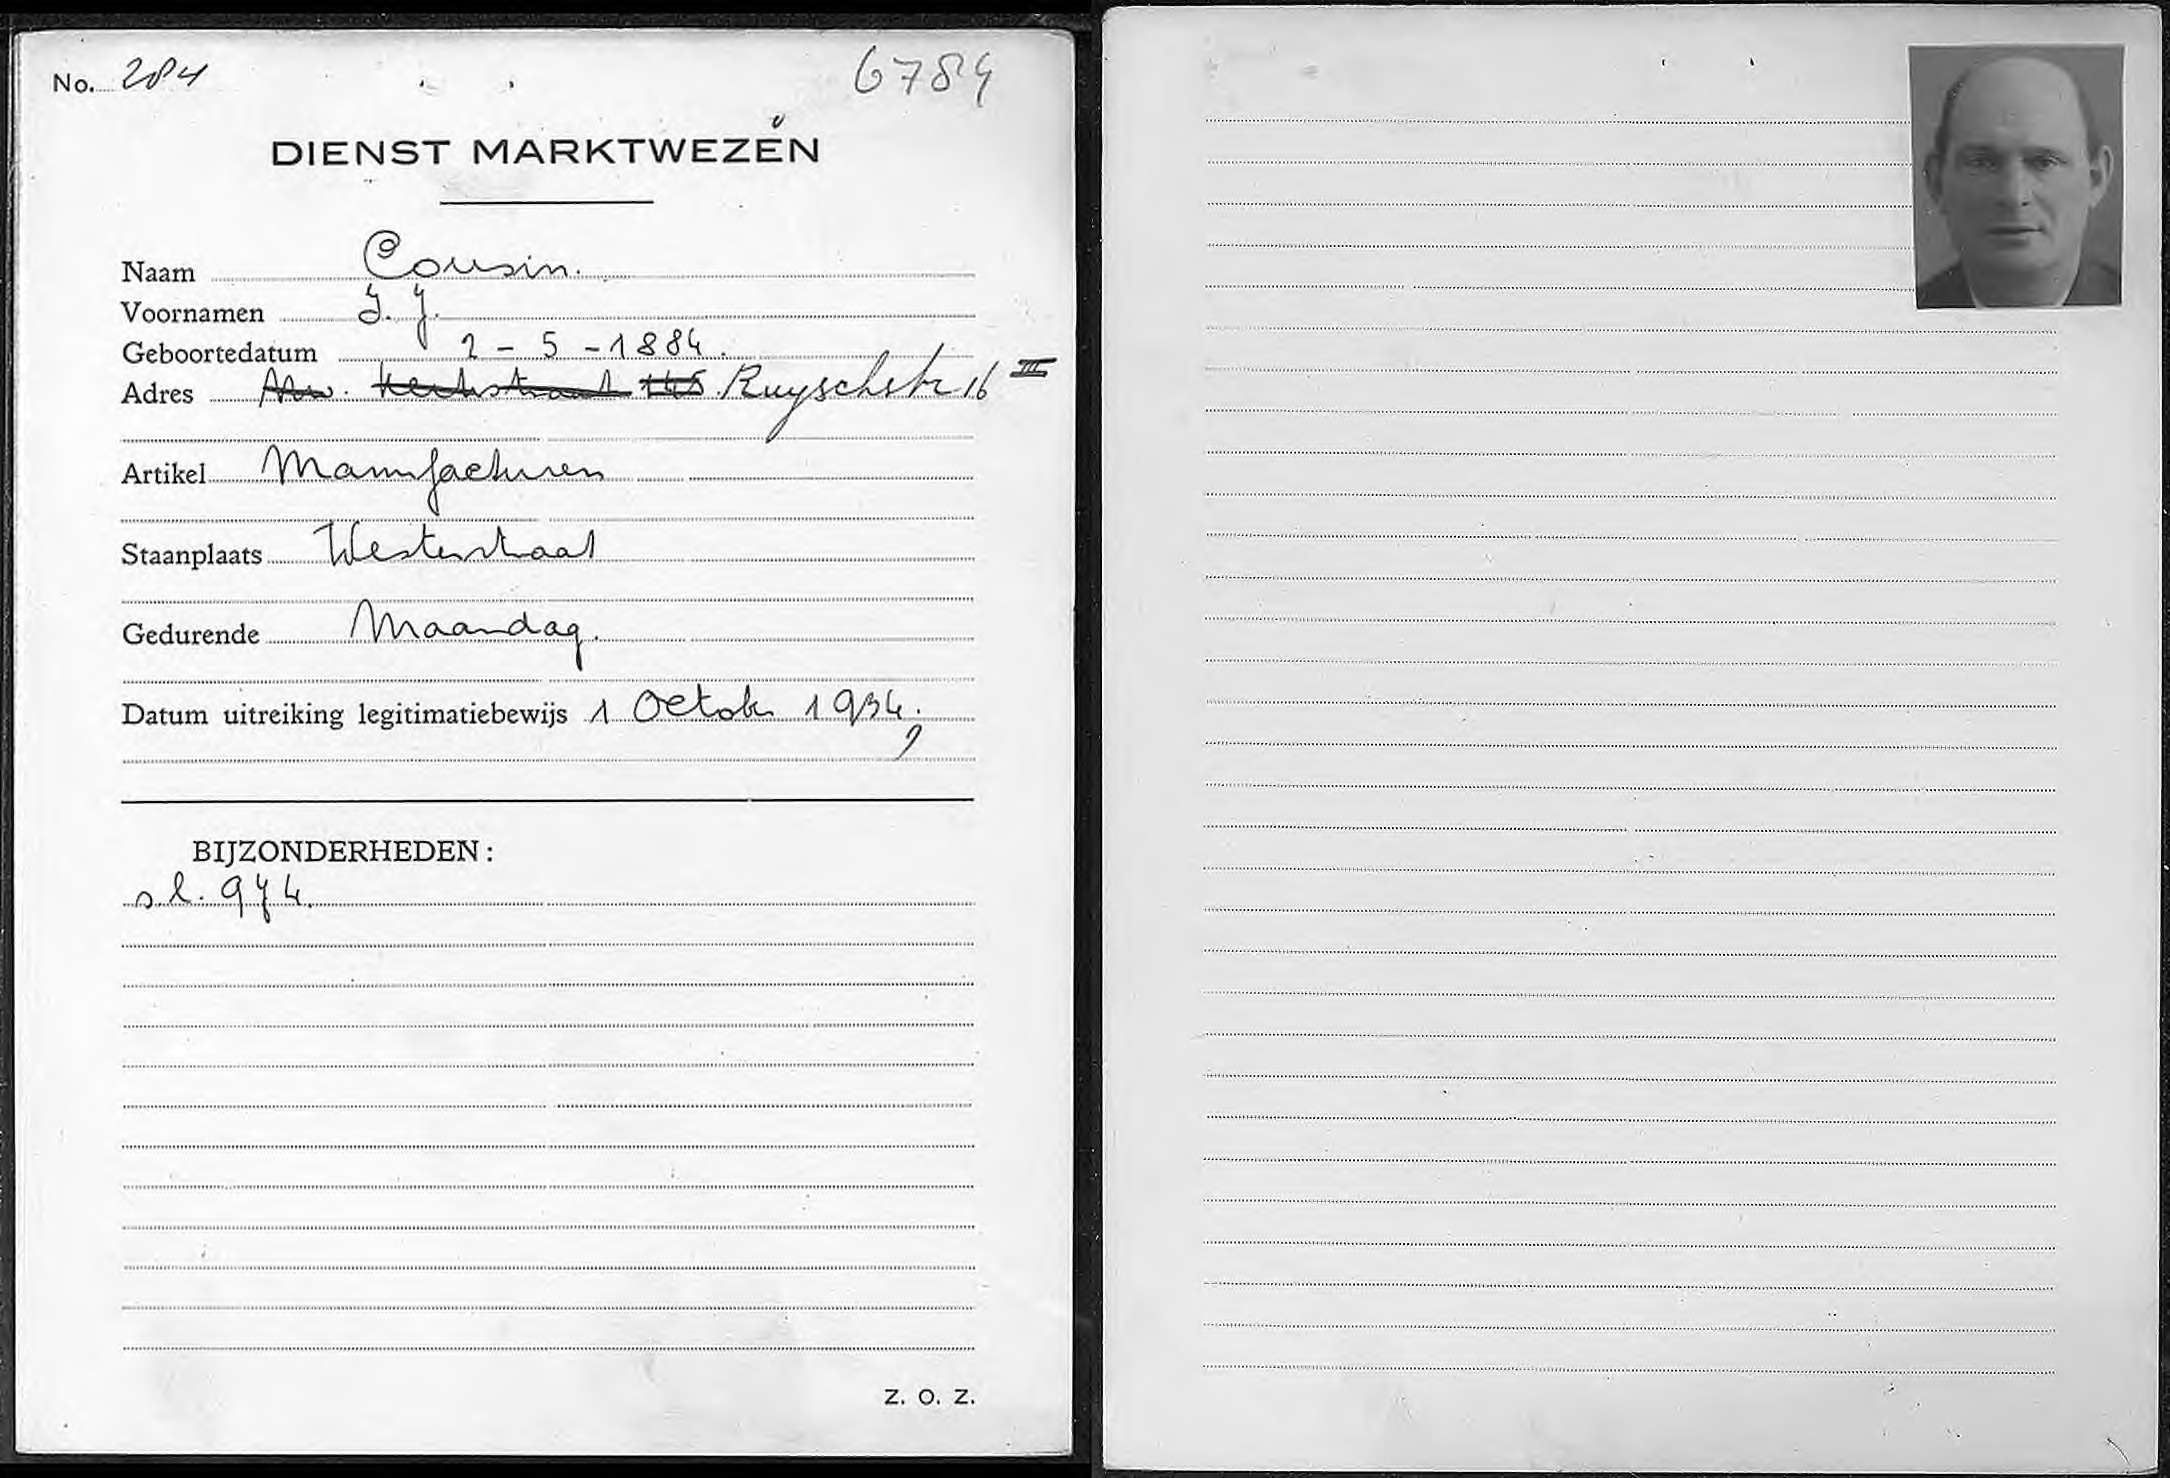 No. 284
6784
DIENST MARKTWEZEN
Naam Cousin.
Voornamen J. J.
Geboortedatum 2 - 5 - 1884.
Adres Nw. Kerkstraat 145 Ruyschstr 16 III
Artikel Manufacturen
Staanplaats Westerstraat
Gedurende Maandag.
Datum uitreiking legitimatiebewijs 1 Octobr 1934.
BIJZONDERHEDEN:
s.l. 974.
Z. O. Z.